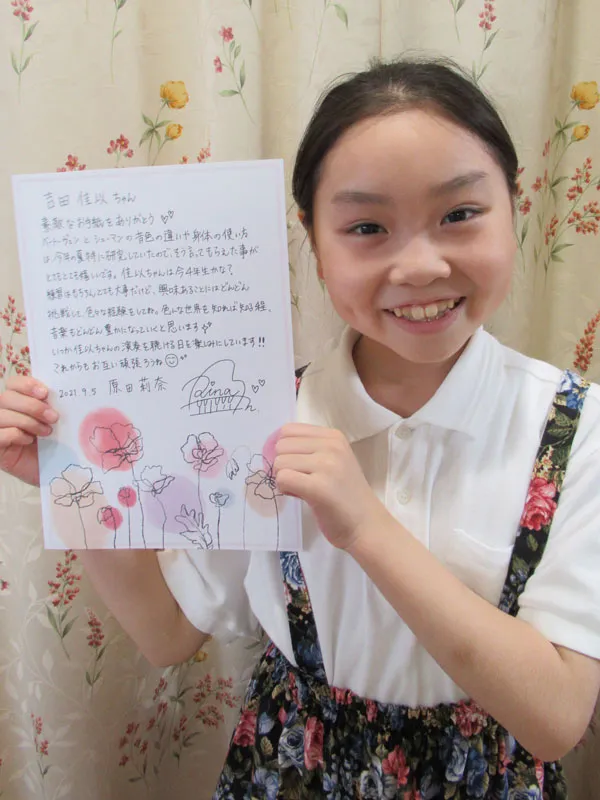 吉田 佳以 ちゃん
素敵なお手紙をありがとう♡♡
ベートーヴェンとシューマンの音色の違いや身体の使い方
は、今年の夏特に研究していたので、そう言ってもらえた事が
とってもとっても嬉しいです。佳以ちゃんは今4年生かな?
練習はもちろんとても大事だけど、興味あることにはどんどん
挑戦して、色々な経験をしてね。色んな世界を知れば知る程、
音楽もどんどん豊かになっていくと思います
いつか佳以ちゃんの演奏を聴ける日を楽しみにしています!!
これからもお互い頑張ろうね
2021.9.5 原田莉奈
Rina